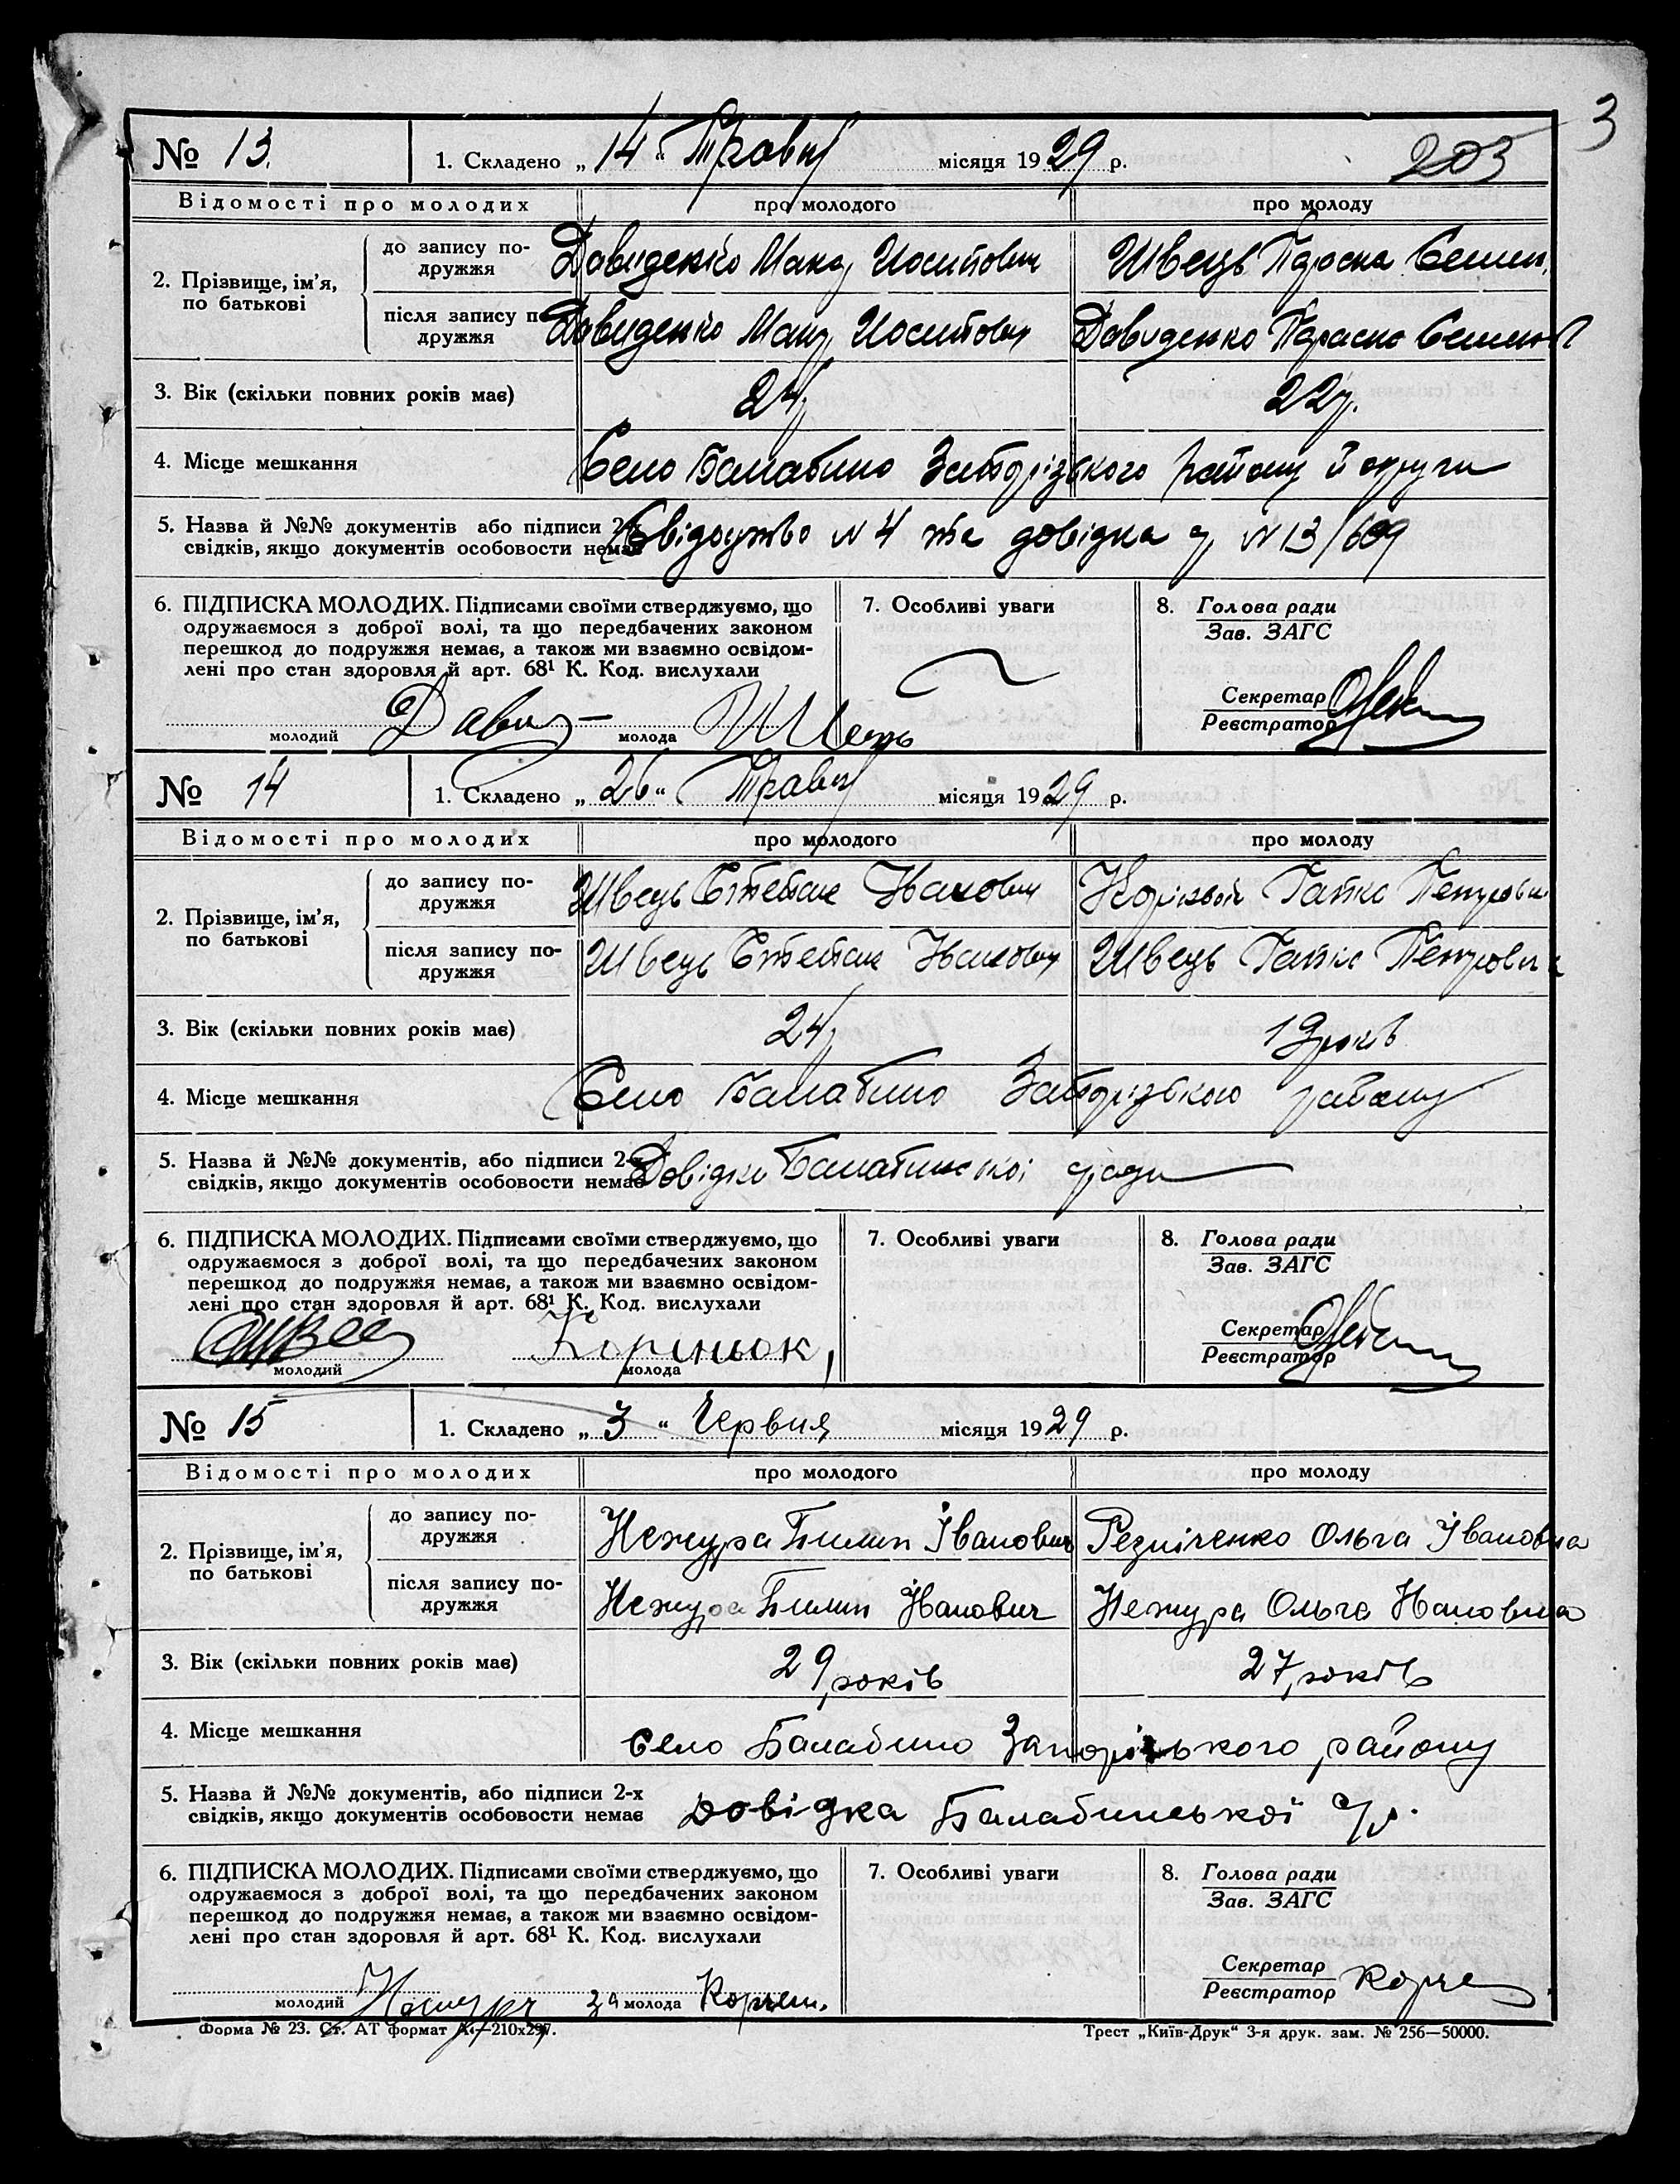 3
№ 13. 1. Складено „14“ Травня місяця 1929 р. 203
Відомості про молодих про молодого про молоду
2. Прізвище, ім'я, по батькові
до запису по-дружжя Давиденко Макар Иосипович Швець Параска Семен.
після запису по-дружжя Давиденко Макар Иосипович Давиденко Параска Семенов
3. Вік (скільки повних років має) 24 22р.
4. Місце мешкання Село Балабино Запорізького району й округи
5. Назва й №№ документів або підписи 2-х
свідків, якщо документів особовости немає Свідоцтво № 4 та довідка № 13/609
6. ПІДПИСКА МОЛОДИХ. Підписами своїми стверджуємо, що 7. Особливі уваги 8. Голова ради
одружаємося з доброї волі, та що передбачених законом Зав. ЗАГС
перешкод до подружжя немає, а також ми взаємно освідом-
лені про стан здоровля й арт. 68¹ К. Код. вислухали
Секретар
Реєстратор
молодий Давид молода Швець
№ 14 1. Складено „26“ Травня місяця 1929 р.
Відомості про молодих про молодого про молоду
2. Прізвище, ім'я, по батькові
до запису по-дружжя Швець Степан Іванович Гапка Петровна
після запису по-дружжя Швець Степан Іванович Швець Гапка Петровна
3. Вік (скільки повних років має) 24 19 років
4. Місце мешкання Село Балабино Запорізького району
5. Назва й №№ документів, або підписи 2-х
свідків, якщо документів особовости немає Довідки Балабинської ради
6. ПІДПИСКА МОЛОДИХ. Підписами своїми стверджуємо, що 7. Особливі уваги 8. Голова ради
одружаємося з доброї волі, та що передбачених законом Зав. ЗАГС
перешкод до подружжя немає, а також ми взаємно освідом-
лені про стан здоровля й арт. 68¹ К. Код. вислухали
Секретар
Реєстратор
молодий Швец молода Кориньок
№ 15 1. Складено „3“ Червня місяця 1929 р.
Відомості про молодих про молодого про молоду
2. Прізвище, ім'я, по батькові
до запису по-дружжя Нежура Пилип Іванович Резніченко Ольга Івановна
після запису по-дружжя Нежура Пилип Іванович Нежура Ольга Івановна
3. Вік (скільки повних років має) 29 років 27 років
4. Місце мешкання село Балабино Запорізького району
5. Назва й №№ документів, або підписи 2-х
свідків, якщо документів особовости немає Довідка Балабинської с/р.
6. ПІДПИСКА МОЛОДИХ. Підписами своїми стверджуємо, що 7. Особливі уваги 8. Голова ради
одружаємося з доброї волі, та що передбачених законом Зав. ЗАГС
перешкод до подружжя немає, а також ми взаємно освідом-
лені про стан здоровля й арт. 68¹ К. Код. вислухали
Секретар
Реєстратор
молодий Нежура за молода
Форма № 23. Ст. АТ формат А4—210х297. Трест „Київ-Друк“ 3-я друк. зам. № 256—50000.